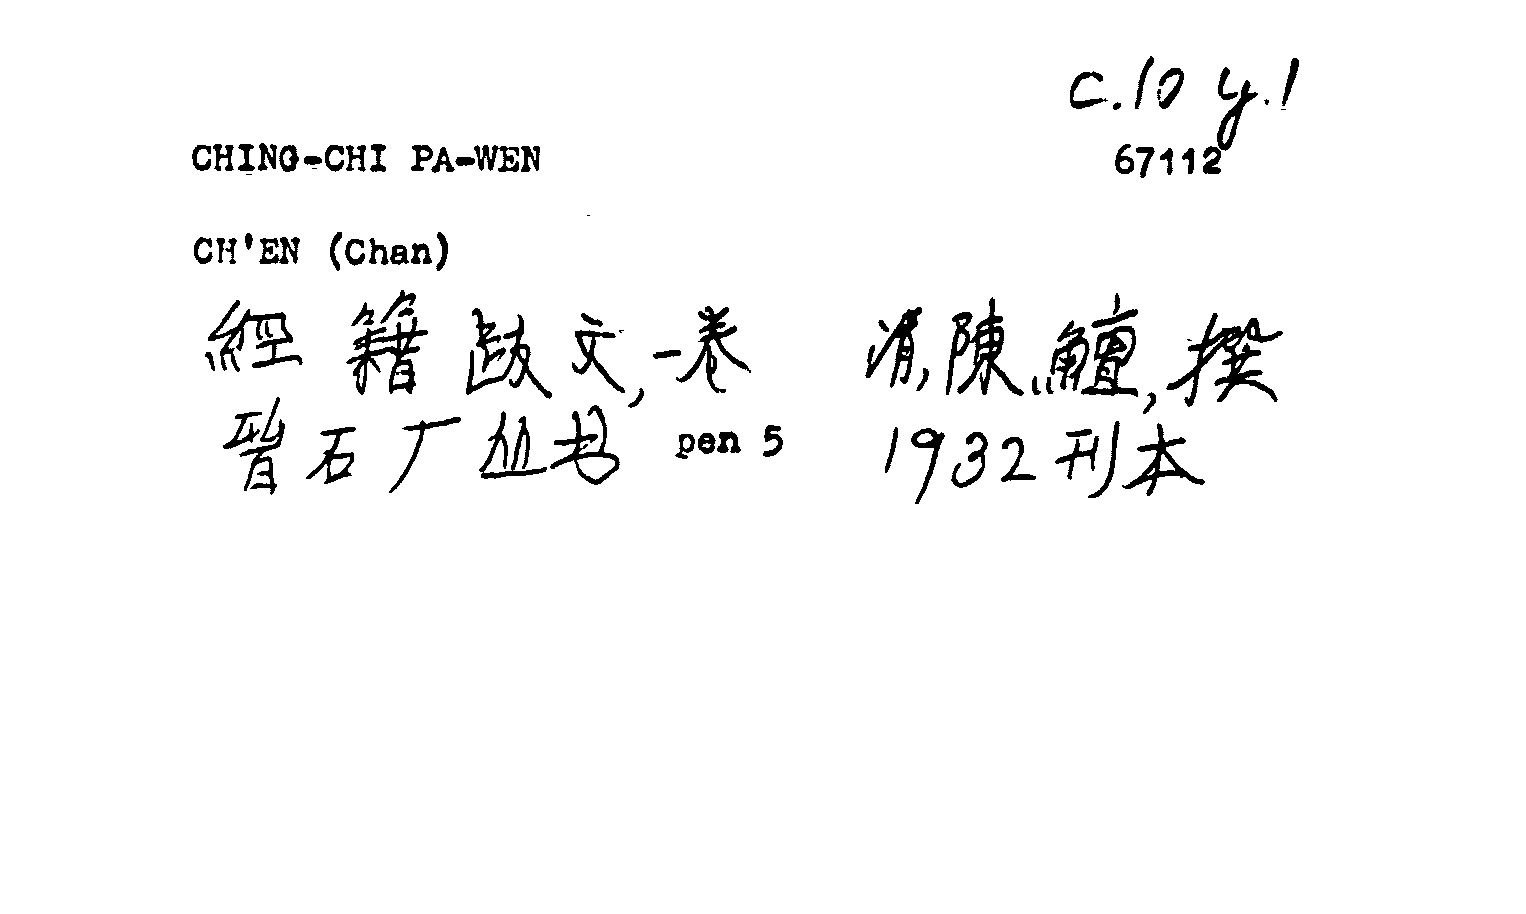 c.10 y.1
CHING-CHI PA-WEN 67112
CH'EN (Chan)
經籍跋文,一卷 清,陳鱣,撰
晉石厂丛书 pen 5 1932刊本